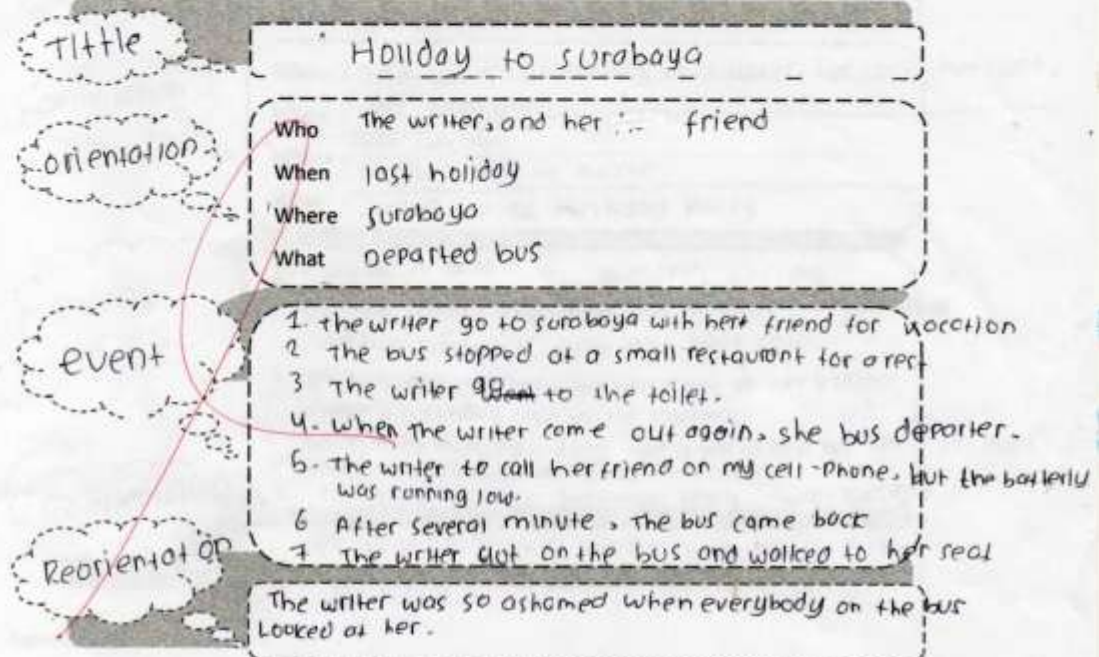 Tittle
Holiday to surabaya
orientation
Who The writer, and her friend
When last holiday
Where surabaya
What Departed bus
event
1. the writer go to suroboya with hert friend for vocotion
2 The bus stopped at a small restaurant for a rest
3 The writer go to the toilet.
4. When the writer come out again, she bus deporter.
5. The writer to call her friend on my cell-Phone, but the batterly
was running low.
6 After several minute, The bus came back
7 The writer on the bus and walked to her seat
Reorientation
The writer was so ashamed when everybody on the bus
Looked at her.